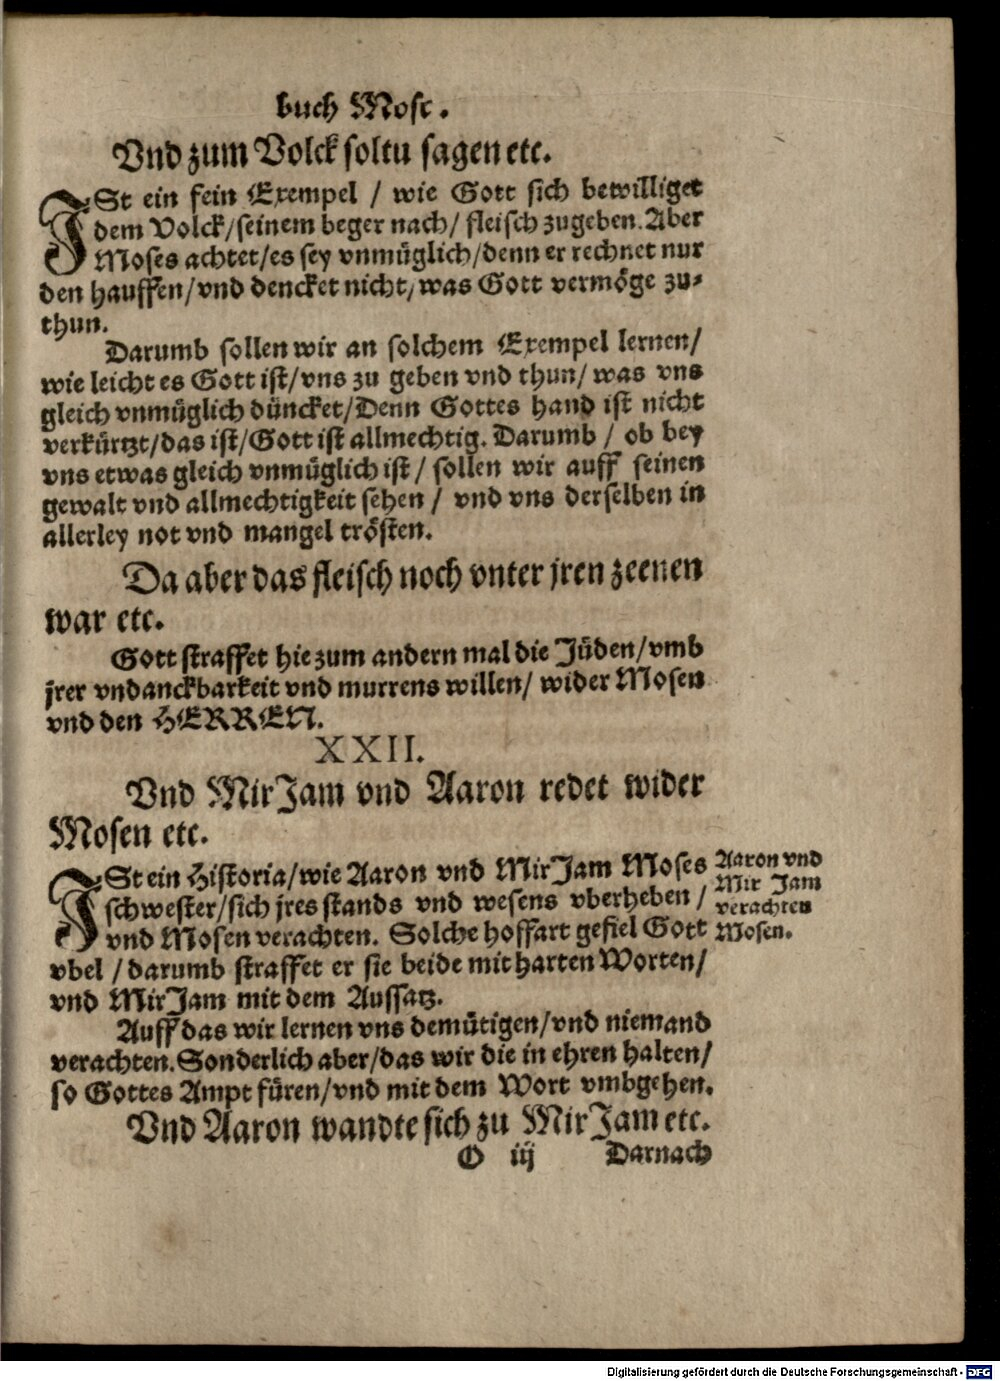 buch Mose.
Vnd zum Volck soltu sagen etc.
ISt ein fein Exempel / wie Gott sich bewilliget
dem Volck/seinem beger nach/ fleisch zugeben. Aber
Moses achtet/es sey vnmüglich/denn er rechnet nur
den hauffen/vnd dencket nicht/was Gott vermöge zu-
thun.
Darumb sollen wir an solchem Exempel lernen/
wie leicht es Gott ist/vns zu geben vnd thun/ was vns
gleich vnmüglich düncket/Denn Gottes hand ist nicht
verkürtzt/das ist/Gott ist allmechtig. Darumb / ob bey
vns etwas gleich vnmüglich ist / sollen wir auff seinen
gewalt vnd allmechtigkeit sehen / vnd vns derselben in
allerley not vnd mangel trösten.
Da aber das fleisch noch vnter jren zeenen
war etc.
Gott straffet hie zum andern mal die Jüden/vmb
jrer vndanckbarkeit vnd murrens willen/ wider Mosen
vnd den HERREN.
XXII.
Vnd MirJam vnd Aaron redet wider
Mosen etc.
ISt ein Historia/wie Aaron vnd MirJam Moses
schwester/sich jres stands vnd wesens vberheben /
vnd Mosen verachten. Solche hoffart gefiel Gott
vbel / darumb straffet er sie beide mit harten Worten/
vnd MirJam mit dem Aussatz.
Aaron vnd
Mir Jam
verachten
Mosen.
Auff das wir lernen vns demütigen/vnd niemand
verachten. Sonderlich aber/das wir die in ehren halten/
so Gottes Ampt füren/vnd mit dem Wort vmbgehen.
Vnd Aaron wandte sich zu MirJam etc.
O iij Darnach
Digitalisierung gefördert durch die Deutsche Forschungsgemeinschaft - DFG